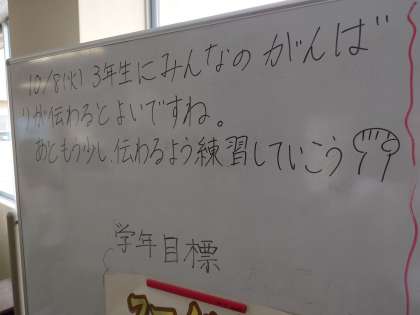 10/8(火) 3年生にみんなのがんば
りが伝わるとよいですね。
あともう少し、伝わるよう練習していこう
学年目標